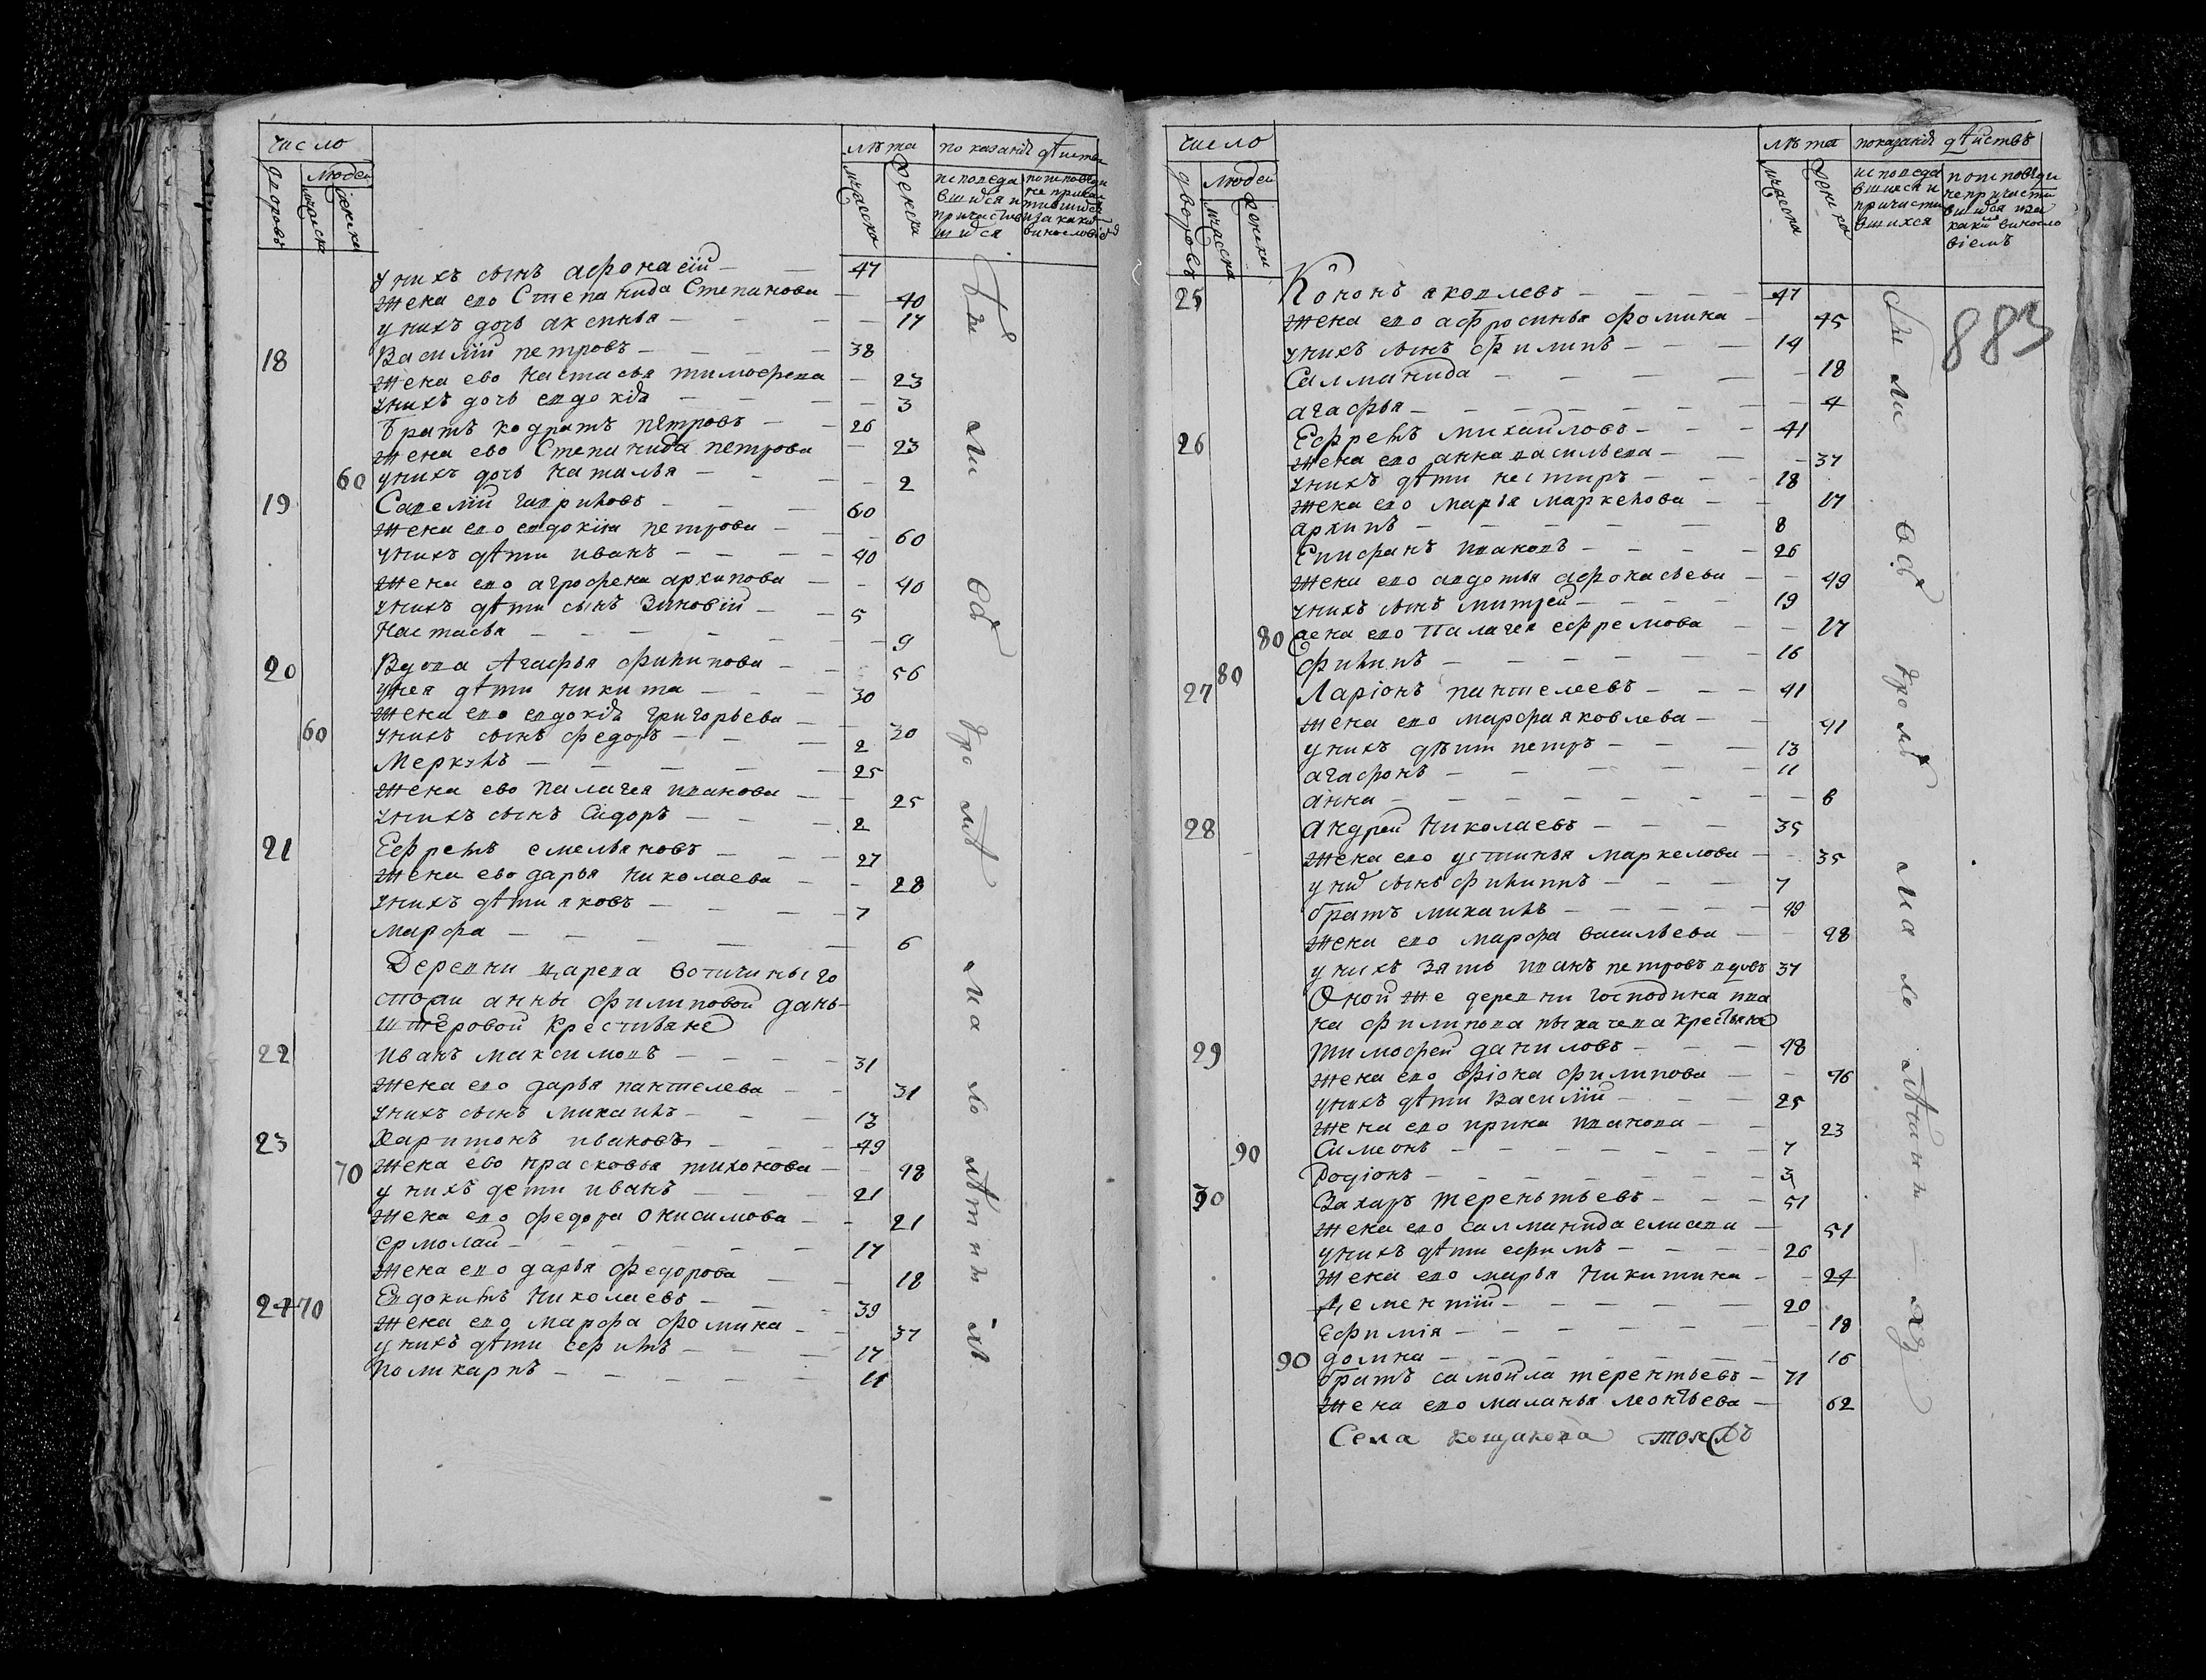 число
дворовъ
людей
мужеска
женска
лѣта
мужеска
женска
показанiе дѣйства
исповеда
вшихся и
причастив
шихся
у нихъ сынъ афонасiй — 47
жена ево Степанида Степанова — 40
у нихъ дочь аксинья — 17
18 Василiй петровъ — 38
жена ево настасья тимофеева — 23
у нихъ дочь евдокiя — 3
братъ кодратъ петровъ — 26
жена ево Степанида петрова — 23
60 у нихъ дочь наталья — 2
19 Савелiй гавриловъ — 60
жена ево евдокия петрова — 60
у нихъ дѣти иванъ — 40
жена ево агрофена архипова — 40
у нихъ дѣти сынъ Зиновiй — 5
Настасья — 9
20 Вдова Агафья филипова — 56
у нея дѣти никита — 30
жена ево евдокiя григорьева — 30
60 у нихъ сынъ федоръ — 2
Меркулъ — 25
жена ево палагея иванова — 25
у нихъ сынъ Сидоръ — 2
21 Ефремъ емельяновъ — 27
жена ево дарья николаева — 28
у нихъ дѣти яковъ — 7
марфа — 6
Деревни царева вотчины го
спожи анны филиповой дань
штеровой крестьяне
22 иванъ максимовъ — 31
жена ево дарья пантелева — 31
у нихъ сынъ михаилъ — 13
23 Харитонъ ивановъ — 49
70 жена ево прасковья тихонова — 48
у нихъ дети иванъ — 21
жена ево федора онисимова — 21
ермолай — 17
жена ево дарья федорова — 18
24 70 Евдокимъ николаевъ — 39
жена ево марфа фомина — 37
у нихъ дѣти ефимъ — 17
поликарпъ — 11
число
дворовъ
людей
мужеска
женска
лѣта
мужеска
женска
показанiе дѣйствъ
исповеда
вшихся и
причасти
вшихся
по исповѣди
не причасти
вшихся и за
какимъ виносло
вiемъ
883
25 Кононъ яковлевъ — 47
жена ево афросинья фомина — 45
у нихъ сынъ филипъ — 14
Салманида — 18
агафья — 4
26 Ефремъ михайловъ — 41
жена ево анна васильева — 37
у нихъ дѣти нестиръ — 18
жена ево марья маркелова — 17
архипъ — 8
Епифанъ ивановъ — 26
жена ево авдотья афонасьева — 49
у нихъ сынъ митрей — 19
80 жена ево палагея ефремова — 27
филипъ — 16
27 80 Ларiонъ пантелеевъ — 41
жена ево марфа яковлева — 41
у нихъ дѣти петръ — 13
агафонъ — 11
анна — 6
28 андрей николаевъ — 35
жена ево устинья маркелова — 35
у них сынъ филиппъ — 7
братъ михаилъ — 49
жена ево марфа васильева — 48
у нихъ зять иванъ петровъ вдовъ 37
Оной же деревни господина ива
на филипова пыхачева крестьяне
29 тимофей даниловъ — 48
жена ево фiона филипова — 46
у нихъ дѣти Василiй — 25
жена ево ирина иванова — 23
90 Симеонъ — 7
Родiонъ — 3
30 Захаръ терентьевъ — 51
жена ево салманида елисева — 51
у нихъ дѣти ефимъ — 26
жена ево марья никитина — 24
дементiй — 20
Ефимiя — 18
90 домна — 16
братъ самойла терентьевъ — 71
жена ево маланья леонтьева — 62
Села кощакова